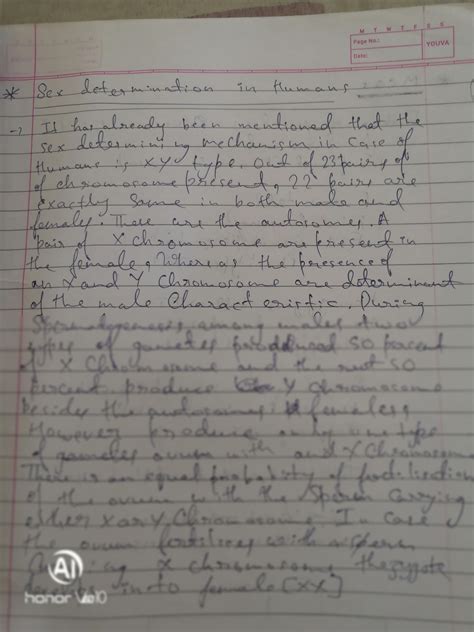 M T W T F S S
Page No.:
Date:
YOUVA
* Sex determination in Humans
→ It has already been mentioned that the
sex determining mechanism in case of
Humans is XY type. Out of 23 pairs of
of chromosome present, 22 pairs are
exactly same in both male and
females. These are the autosomes. A
pair of X chromosome are present in
the female, Whereas the presence of
an X and Y Chromosome are determinant
of the male Characteristic. During
Spermatogenesis, among males two
types of gametes produced 50 percent
of X Chromosome and the rest 50
percent produce Y chromosome
Besides the autosomes. females,
However produce only one type
of gametes ovum with and X Chromosome
There is an equal probability of fertilisation
of the ovum with the Sperm Carrying
either X or Y Chromosome. In case
the ovum fertilises with a sperm
X chromosome the zygote
into female [XX]
AI
honor 10